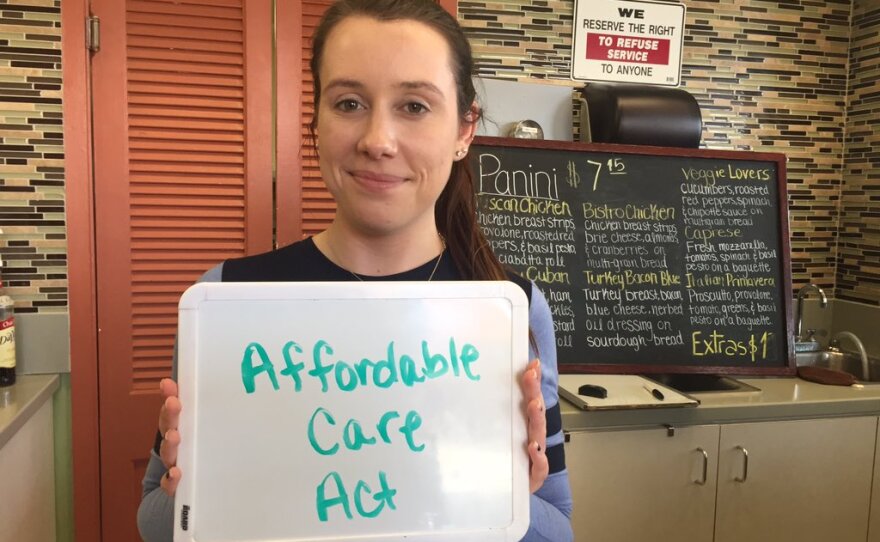 WE
RESERVE THE RIGHT
TO REFUSE
SERVICE
TO ANYONE
Panini $7.15
scan Chicken
Chicken breast strips
provolone, roasted red
& basil pesto
ciabatta roll
Cuban
ham
roll
Bistro Chicken
Chicken breast strips
brie cheese, almonds
& cranberries on
multi-grain bread
Turkey Bacon Blue
Turkey breast, bacon,
blue cheese, herbed
oil dressing on
sourdough bread
Veggie Lovers
cucumbers, roasted
red peppers, spinach,
& chipotle sauce on
multigrain bread
Caprese
Fresh mozzarella,
tomatos, spinach & basil
pesto on a baguette
Italian Primavera
Prosciutto, provolone,
tomato, greens, & basil
pesto on a baguette
Extras $1
Affordable
Care
Act
BOARD